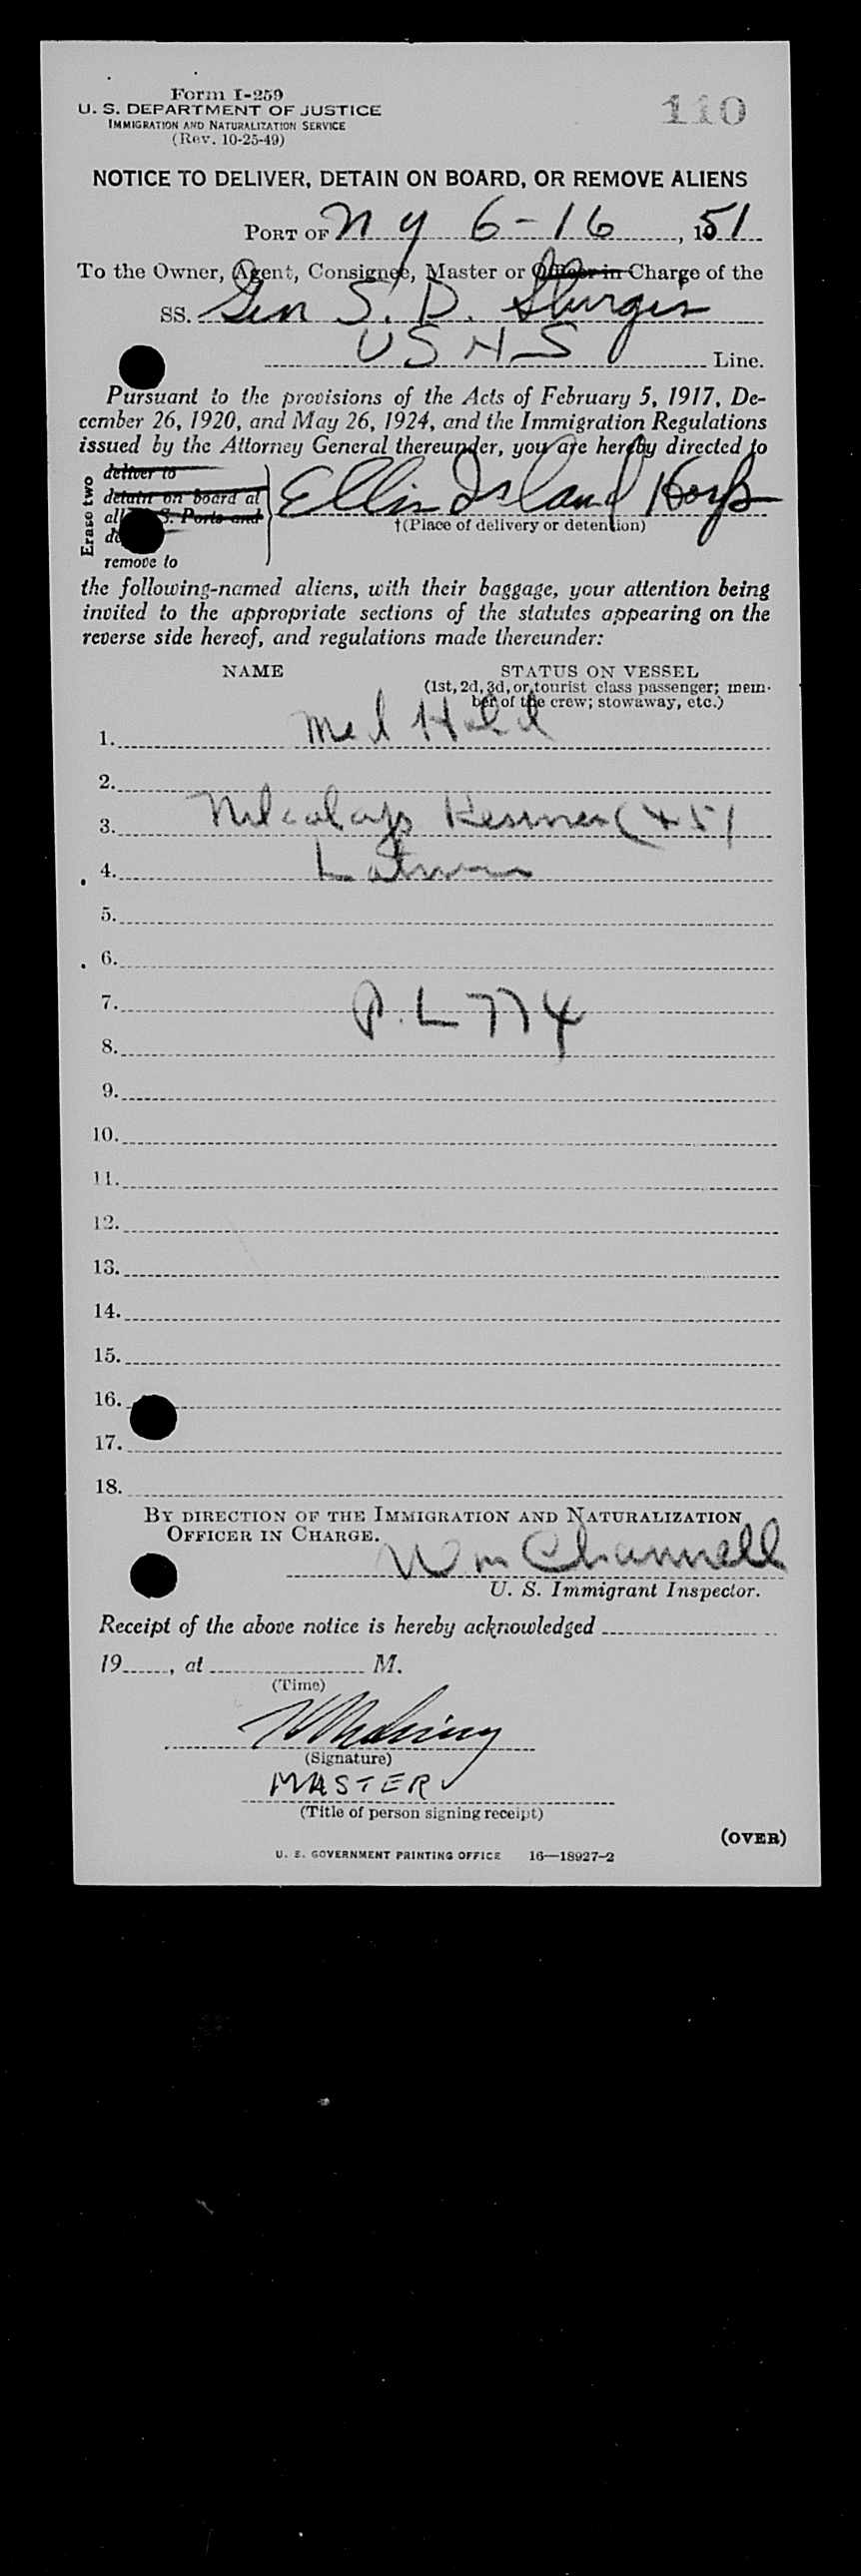 Form I-259
110
U. S. DEPARTMENT OF JUSTICE
IMMIGRATION AND NATURALIZATION SERVICE
(Rev. 10-25-49)
NOTICE TO DELIVER, DETAIN ON BOARD, OR REMOVE ALIENS
PORT OF N Y 6-16, 1951
To the Owner, Agent, Consignee, Master or Officer in Charge of the
SS. Gen S. D. Sturgis
USNS Line.
Pursuant to the provisions of the Acts of February 5, 1917, De-
cember 26, 1920, and May 26, 1924, and the Immigration Regulations
issued by the Attorney General thereunder, you are hereby directed to
Erase two
deliver to
detain on board at
all S. Ports and
remove to
Ellis Island Hosp
†(Place of delivery or detention)
the following-named aliens, with their baggage, your attention being
invited to the appropriate sections of the statutes appearing on the
reverse side hereof, and regulations made thereunder:
NAME STATUS ON VESSEL
(1st, 2d, 3d, or tourist class passenger; mem-
ber of the crew; stowaway, etc.)
1. Med Held
2.
3. (45)
4.
5.
6.
7. P.L 774
8.
9.
10.
11.
12.
13.
14.
15.
16.
17.
18.
BY DIRECTION OF THE IMMIGRATION AND NATURALIZATION
OFFICER IN CHARGE.
Wm Channell
U. S. Immigrant Inspector.
Receipt of the above notice is hereby acknowledged
19, at M.
(Time)
(Signature)
MASTER
(Title of person signing receipt)
(OVER)
U. S. GOVERNMENT PRINTING OFFICE 16—18927-2